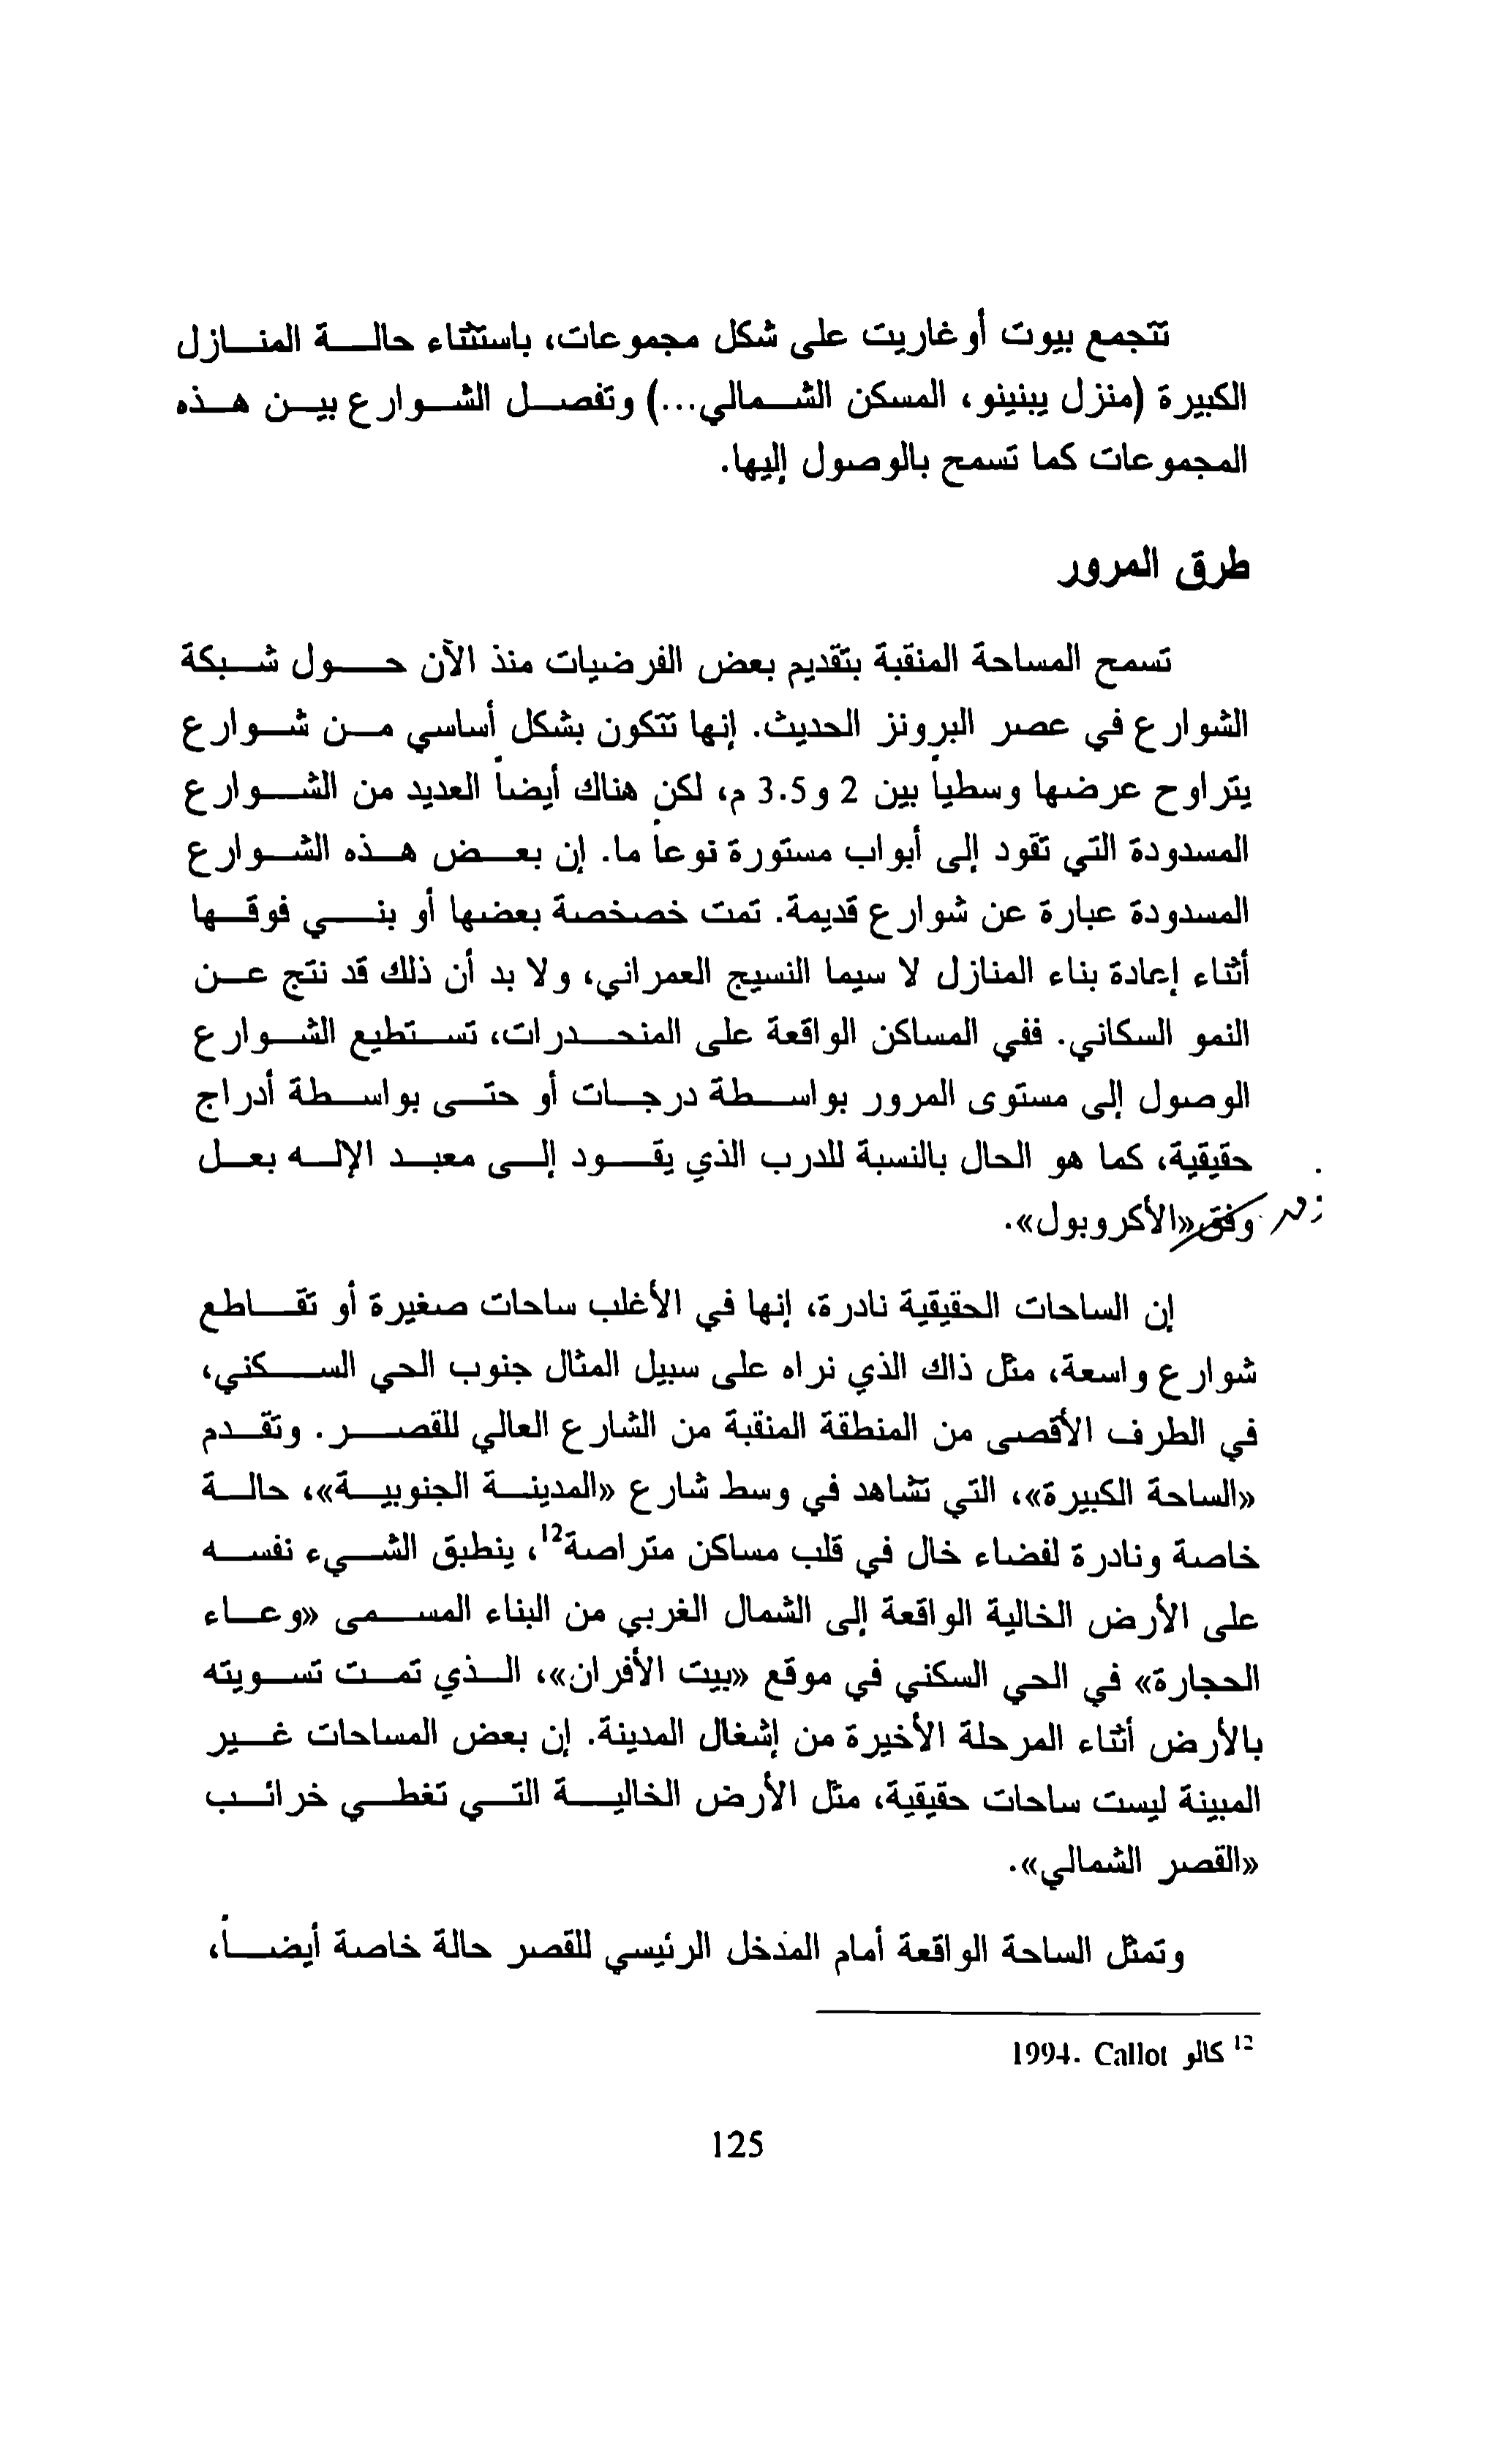 تتجمع بيوت أوغاريت على شكل مجموعات، باستثناء حالة المنازل
الكبيرة (منزل يبنينو، المسكن الشمالي...) وتفصل الشوارع بين هذه
المجموعات كما تسمح بالوصول إليها.
طرق المرور
تسمح المساحة المنقبة بتقديم بعض الفرضيات منذ الآن حول شبكة
الشوارع في عصر البرونز الحديث. إنها تتكون بشكل أساسي من شوارع
يتراوح عرضها وسطياً بين 2 و3.5 م، لكن هناك أيضاً العديد من الشوارع
المسدودة التي تقود إلى أبواب مستورة نوعاً ما. إن بعض هذه الشوارع
المسدودة عبارة عن شوارع قديمة. تمت خصخصة بعضها أو بني فوقها
أثناء إعادة بناء المنازل لا سيما النسيج العمراني، ولا بد أن ذلك قد نتج عن
النمو السكاني. ففي المساكن الواقعة على المنحدرات، تستطيع الشوارع
الوصول إلى مستوى المرور بواسطة درجات أو حتى بواسطة أدراج
حقيقية، كما هو الحال بالنسبة للدرب الذي يقود إلى معبد الإله بعل
وفق «الأكروبول».
إن الساحات الحقيقية نادرة، إنها في الأغلب ساحات صغيرة أو تقاطع
شوارع واسعة، مثل ذاك الذي نراه على سبيل المثال جنوب الحي السكني،
في الطرف الأقصى من المنطقة المنقبة من الشارع العالي للقصر. وتقدم
«الساحة الكبيرة»، التي تشاهد في وسط شارع «المدينة الجنوبية»، حالة
خاصة ونادرة لفضاء خال في قلب مساكن متراصة12، ينطبق الشيء نفسه
على الأرض الخالية الواقعة إلى الشمال الغربي من البناء المسمى «وعاء
الحجارة» في الحي السكني في موقع «بيت الأفران»، الذي تمت تسويته
بالأرض أثناء المرحلة الأخيرة من إشغال المدينة. إن بعض المساحات غير
المبينة ليست ساحات حقيقية، مثل الأرض الخالية التي تغطي خرائب
«القصر الشمالي».
وتمثل الساحة الواقعة أمام المدخل الرئيسي للقصر حالة خاصة أيضاً،
12 كالو Callot .1994
125